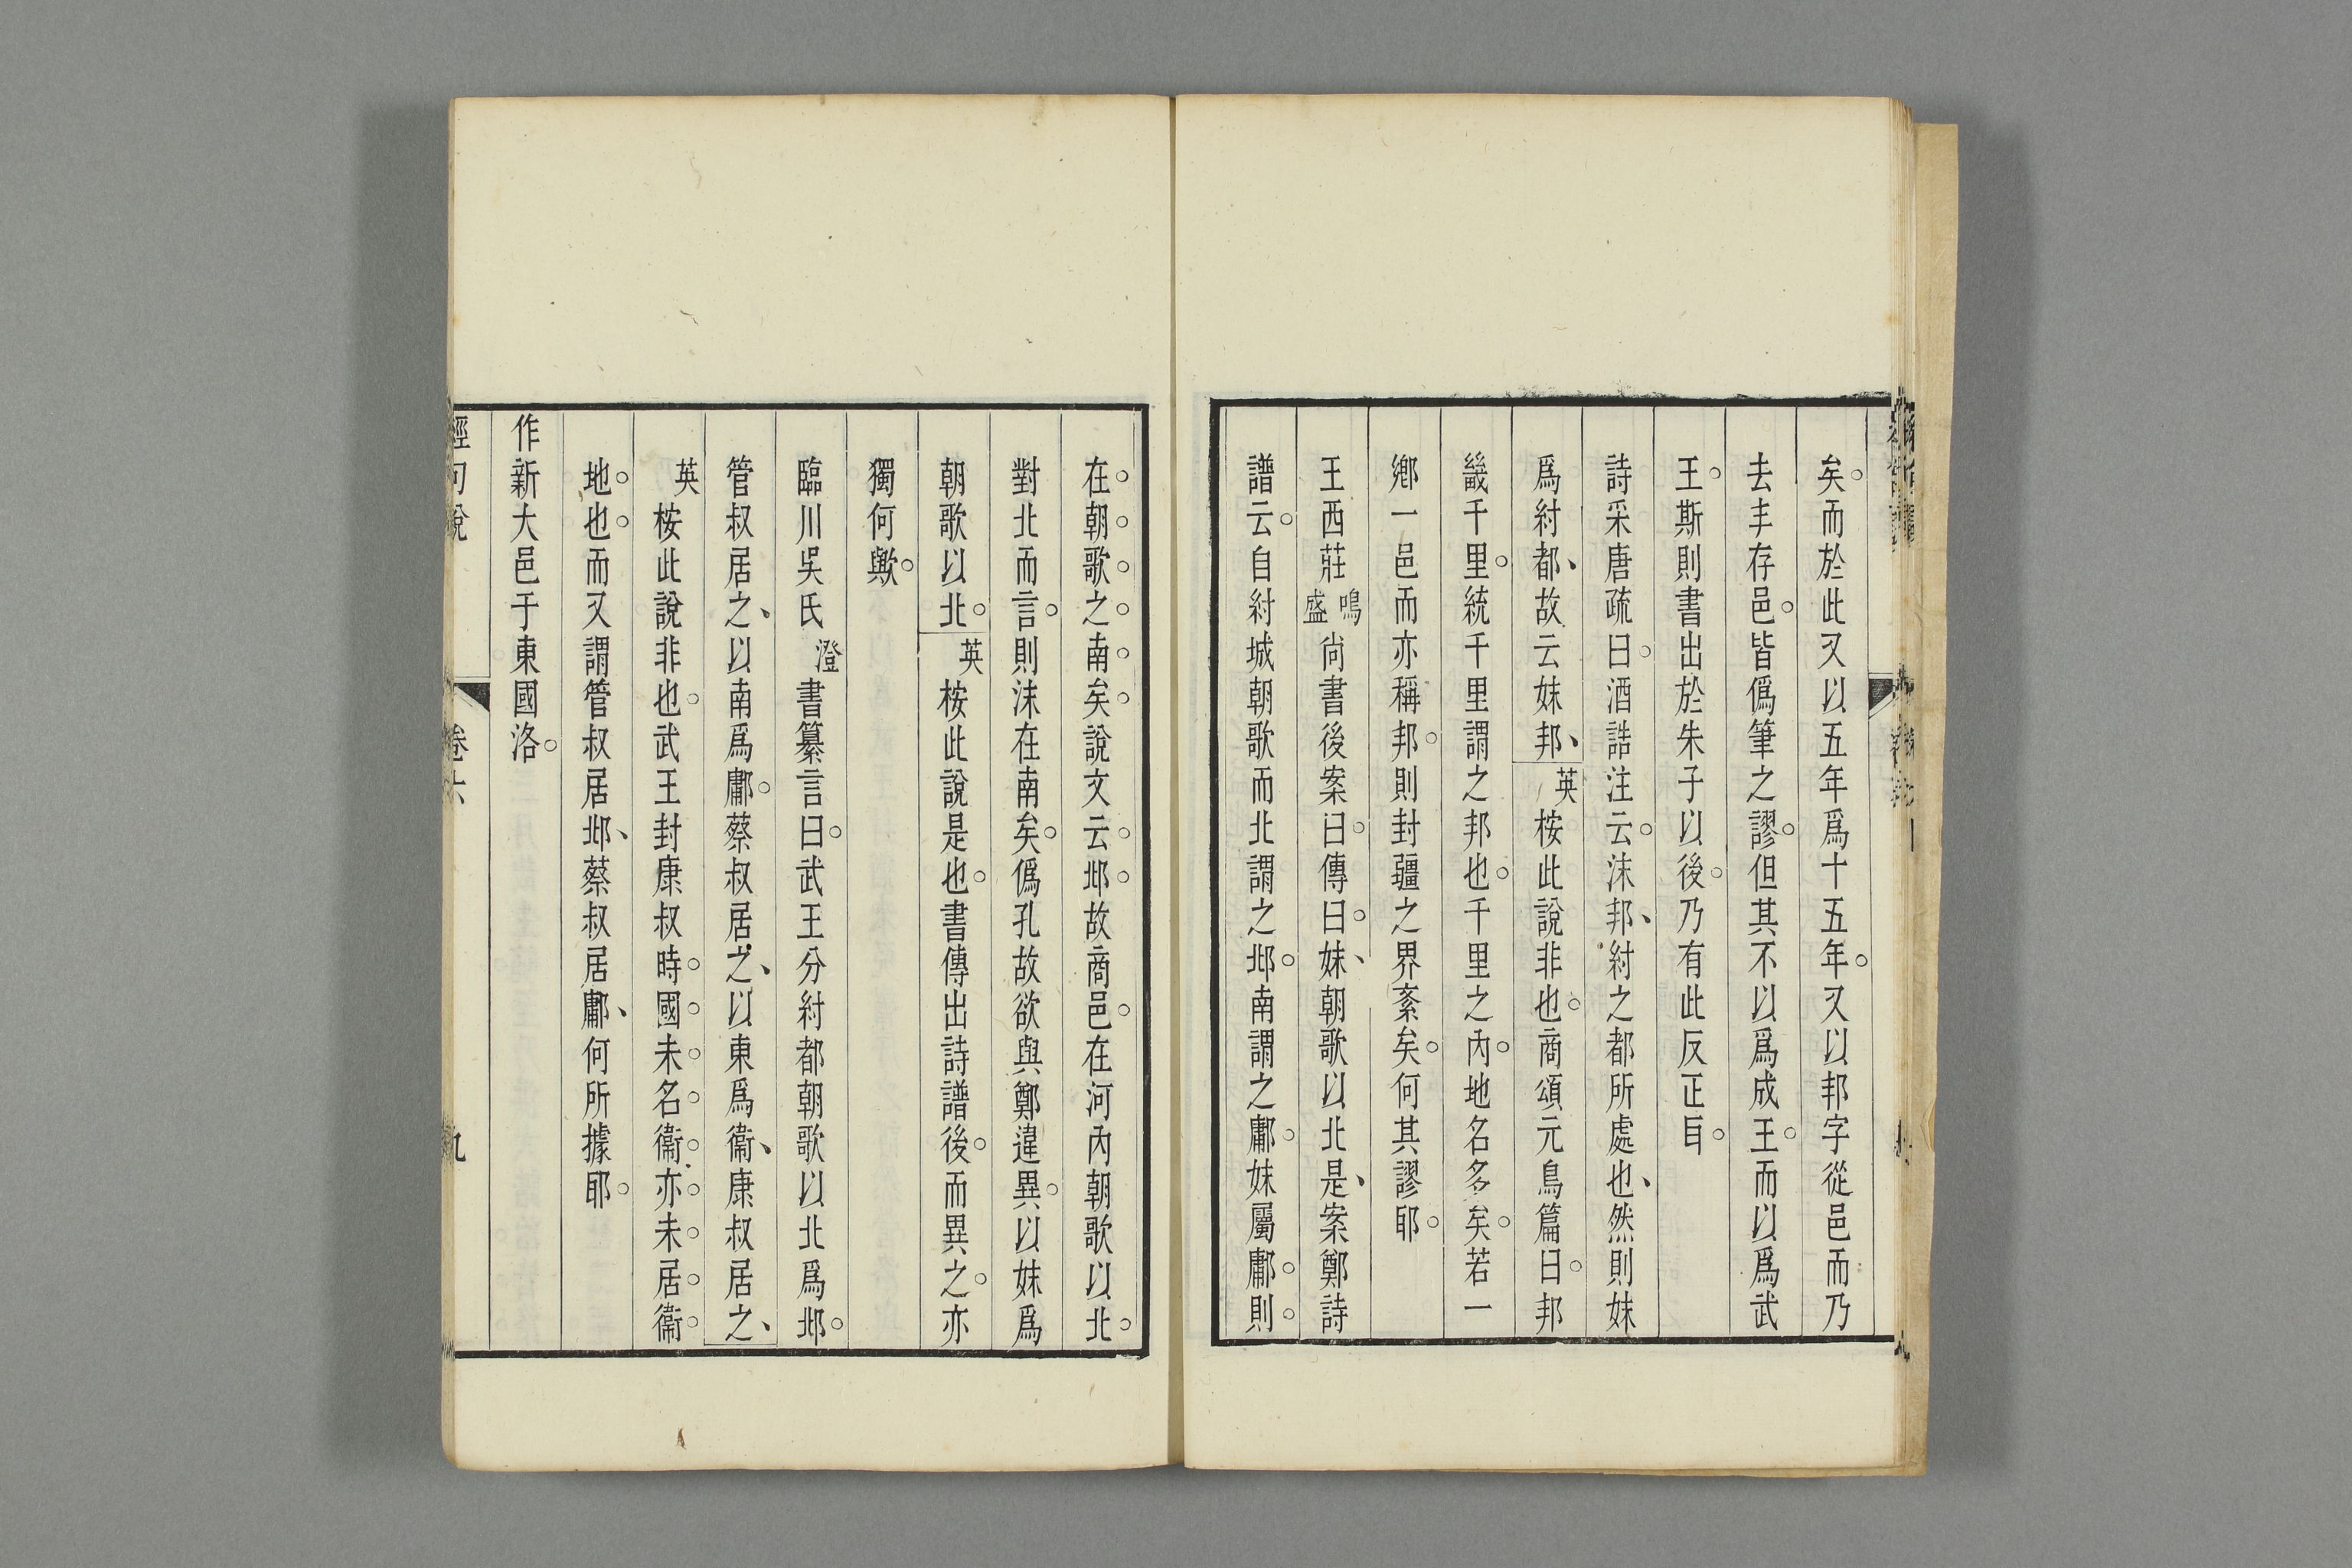 矣而於此又以五年爲十五年又以邦字從邑而乃
去丰存邑皆僞筆之謬但其不以爲成王而以爲武
王斯則書出於朱子以後乃有此反正㠯
詩采唐疏曰酒誥注云沬邦紂之都所處也然則妹
爲紂都故云妹邦英桉此說非也商頌元鳥篇曰邦
畿千里統千里謂之邦也千里之內地名多矣若一
鄉一邑而亦稱邦則封疆之界紊矣何其謬耶
王西莊鳴盛尙書後案曰傳曰妹朝歌以北是案鄭詩
譜云自紂城朝歌而北謂之邶南謂之鄘妹屬鄘則
在朝歌之南矣說文云邶故商邑在河內朝歌以北
對北而言則沬在南矣僞孔故欲與鄭違異以妹爲
朝歌以北英桉此說是也書傳出詩譜後而異之亦
獨何歟
臨川吳氏澄書纂言曰武王分紂都朝歌以北爲邶
管叔居之以南爲鄘蔡叔居之以東爲衞康叔居之
英桉此說非也武王封康叔時國未名衞亦未居衞
地也而又謂管叔居邶蔡叔居鄘何所據耶
作新大邑于東國洛
經句說 卷六 九